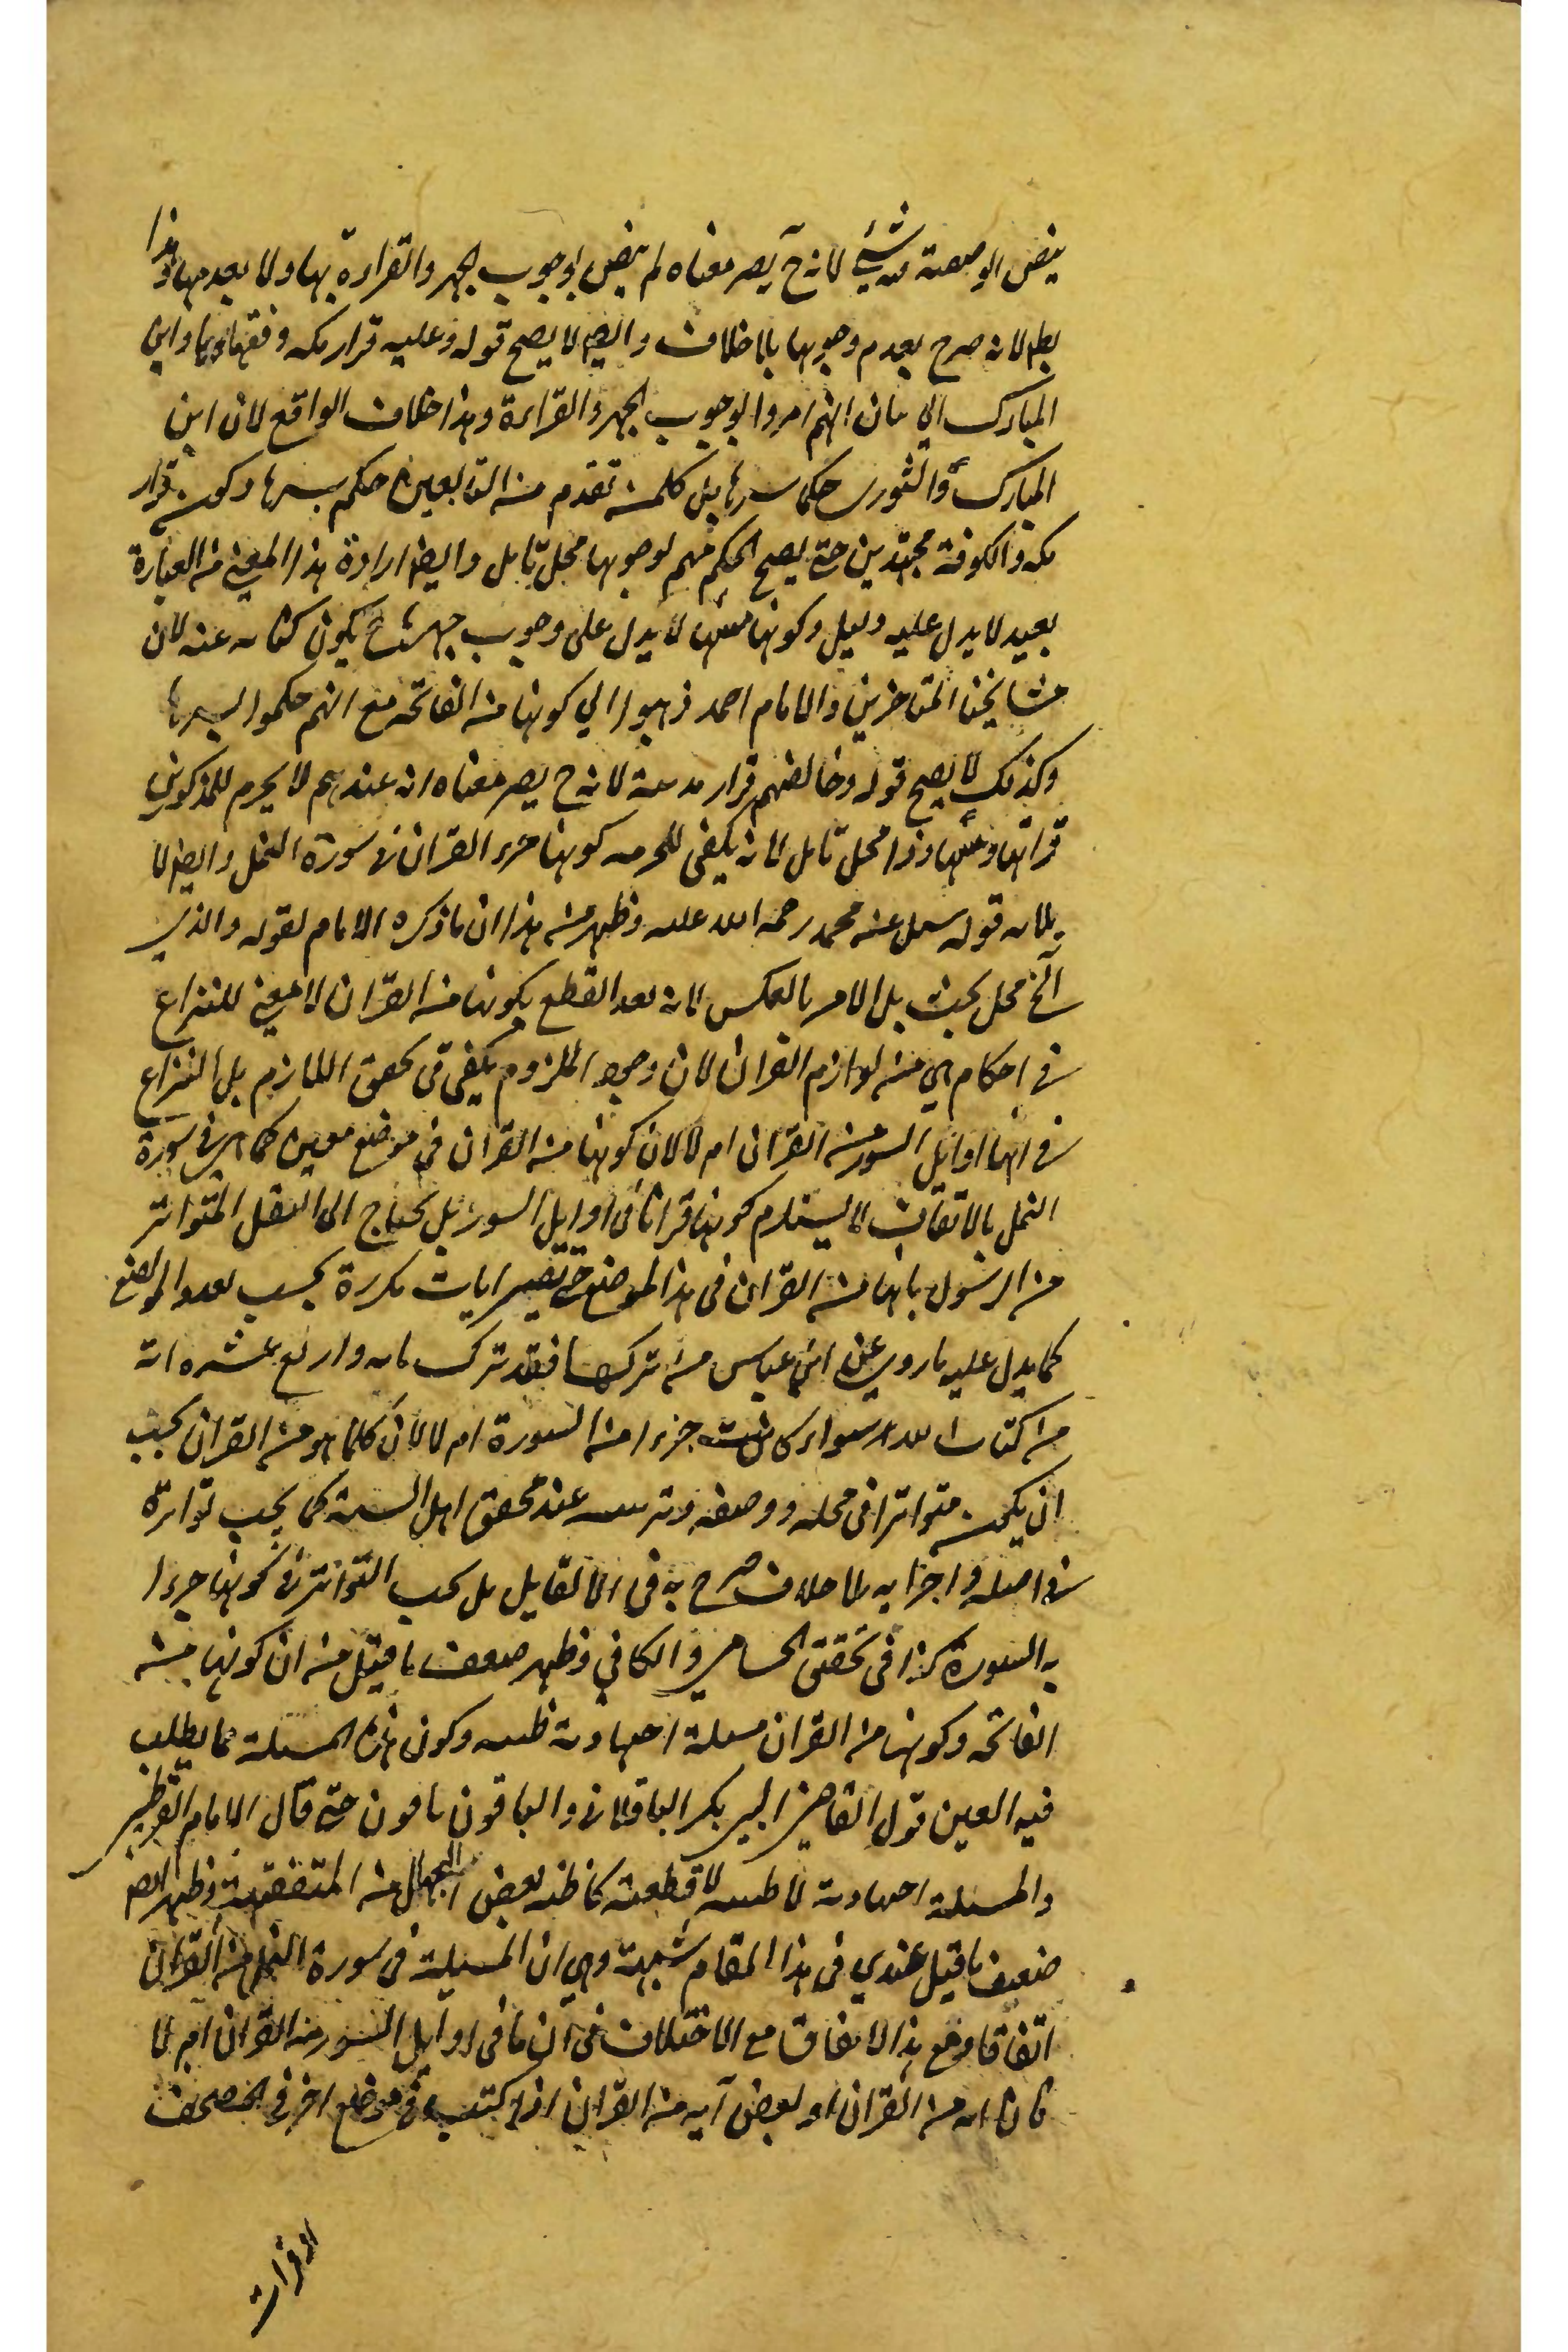 ينص ابو حنيفة فيه بشيء لانه ح يصير معناه لم ينص بوجوب الجهر والقراءة بها ولا بعدمها وهذا
بط لانه صرح بعدم وجوبها بلا خلاف وايضا لا يصح قوله وعليه قراء مكة وفقهاؤها وابن
المبارك الى بيان انهم امروا بوجوب الجهر والقراءة وهذا خلاف الواقع لان ابن
المبارك والثوري حكما بسرها بل كل من تقدم من التابعين حكم بسرها وكون قراء
مكة والكوفة مجتهدين حتى يصح الحكم منهم لوجوبها محل تامل وايضا ارادة هذا المعنى من العبارة
بعيد لا يدل عليه دليل وكونها منها لا يدل على وجوب جهرها ح يكون كناية عنه لان
مشايخنا المتاخرين والامام احمد ذهبوا الى كونها من الفاتحة مع انهم حكموا بسرها
وكذلك لا يصح قوله وخالفهم قراء مدينة لانه ح يصير معناه انه عندهم لا يحرم للمذكورين
قراتها ومسها وذا محل تامل لانه يكفي للحرمة كونها جزء القران في سورة النمل وايضا لا
يلايمه قوله سئل عنه محمد رحمة الله عليه وظهر من هذا ان ما ذكره الامام لقوله والذي
الخ محل بحث بل الامر بالعكس لانه بعد القطع بكونها من القران لا معنى للنزاع
في احكام هي من لوازم القران لان وجود الملزوم يكفي في تحقق اللازم بل النزاع
في انها اوايل السور من القران ام لا لان كونها من القران في موضع معين كما هي في سورة
النمل بالاتفاق لا يستلزم كونها قرانا في اوايل السور بل يحتاج الى النقل المتواتر
من الرسول بانها من القران في هذا الموضع حتى تصير ايات مكررة بحسب تعدد المواضع
كما يدل عليه ما روي عن ابن عباس من تركها فقد ترك ماية واربع عشرة اية
من كتاب الله سواء كانت جزءا من السورة ام لا لان كلما هو من القران يجب
ان يكون متواترا في محله ووضعه وترتيبه عند محقق اهل السنة كما يجب تواتره
في اصله واجزايه بلا خلاف صرح به في الاتقان بل يجب التواتر في كونها جزءا
به السورة كذا في تحقيق الحسامي والكافي وظهر ضعف ما قيل من ان كونها من
الفاتحة وكونها من القران مسئلة اجتهادية ظنية وكون هذه المسئلة مما يطلب
فيه اليقين قول القاضي ابي بكر الباقلاني والباقون نافون حتى قال الامام القرطبي
والمسئلة اجتهادية لا قطعية كما ظنه بعض الجهال من المتفقهة وظهر ايضا
ضعف ما قيل عندي في هذا المقام شبهة وهي ان البسملة في سورة النمل من القران
اتفاقا ومع هذا الاتفاق مع الاختلاف في ان ما في اوايل السور من القران ام لا
من القران او بعض اية من القران اذا كتب في موضع اخر في المصحف